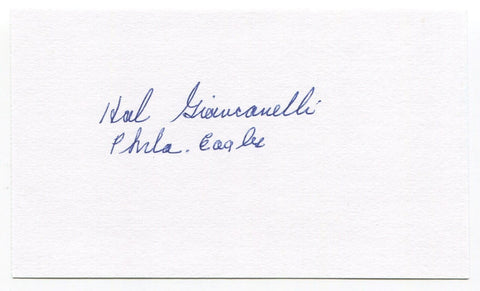 Hal Giancanelli
Phila. Eagles